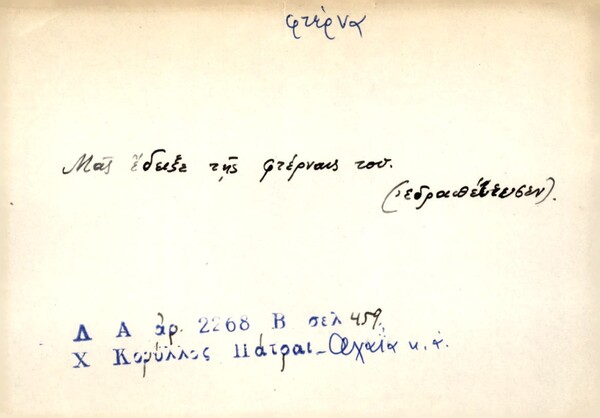 φτέρνα
Μᾶς ἔδειξε τῆς φτέρναις του.
(ἐδραπέτευσεν).
Λ Α ἀρ. 2268 Β σελ 459.
Χ Κορύλλος Πάτραι - Ἀχαΐα κ. ἀ.